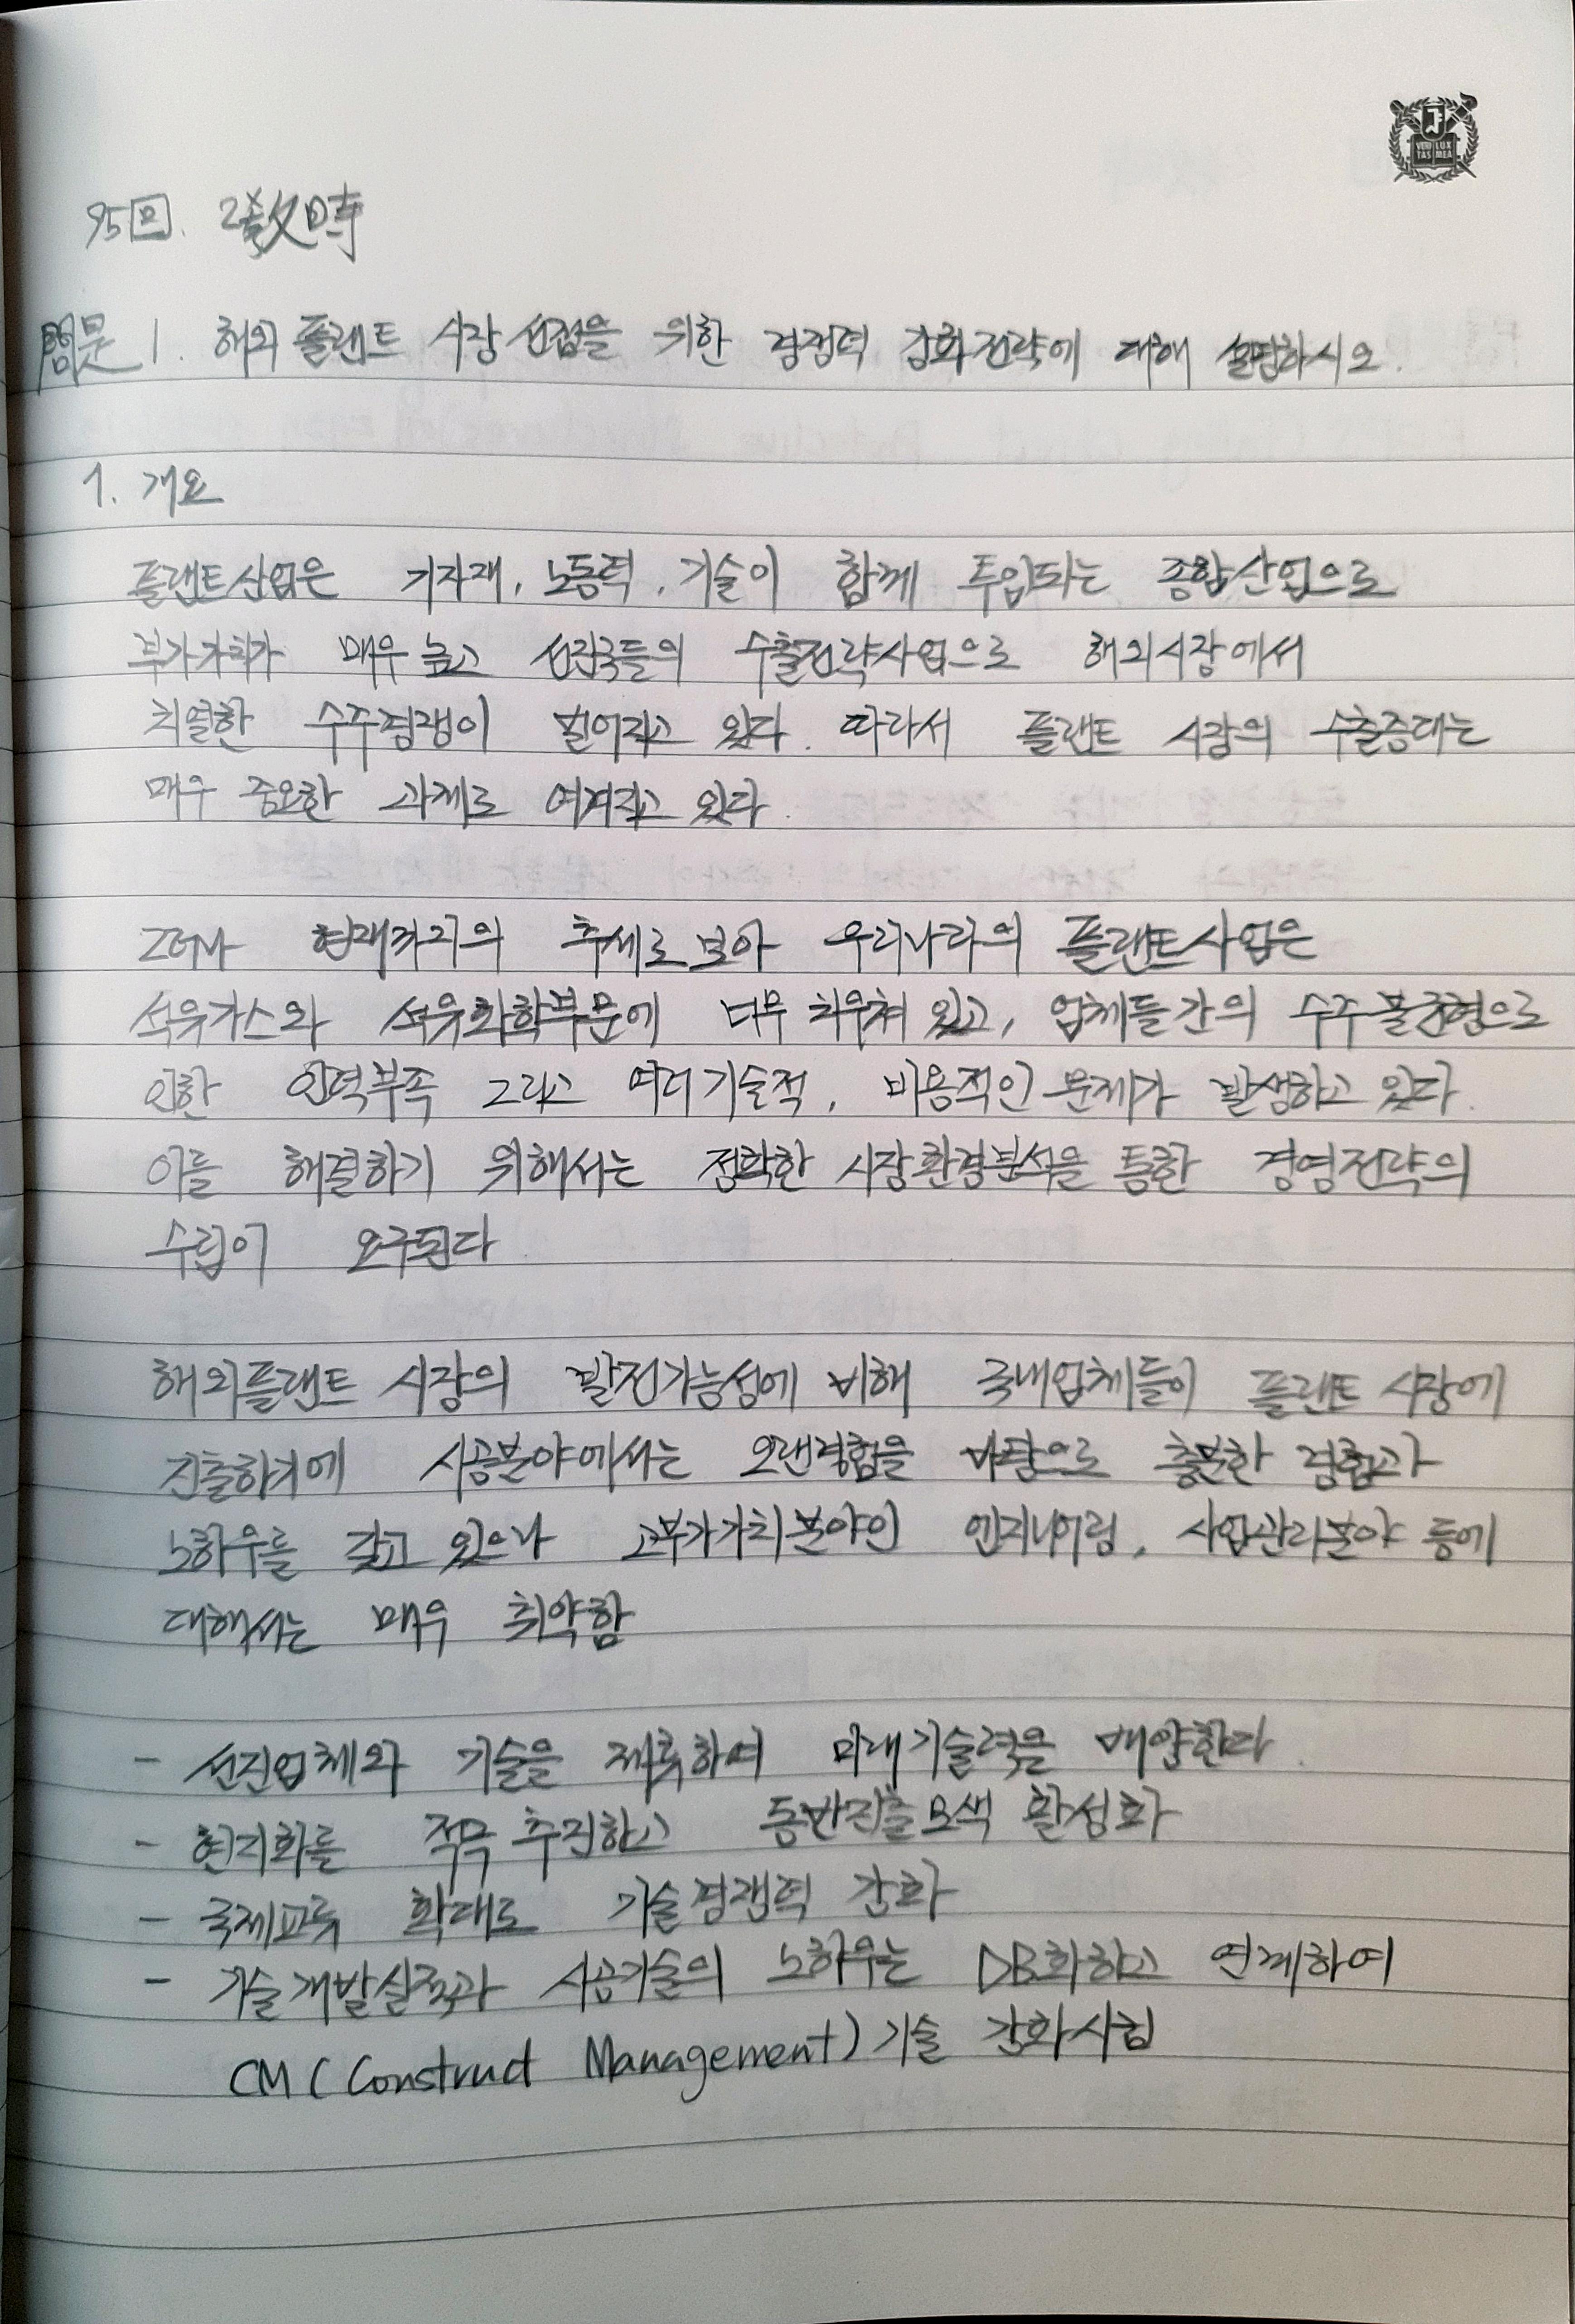 VERI LUX
TAS MEA
95回. 2敎時
問題 1. 해외 플랜트 시장 선점을 위한 경쟁력 강화전략에 대해 설명하시오.
1. 개요
플랜트산업은 기자재, 노동력, 기술이 함께 투입되는 종합산업으로
부가가치가 매우 높고 선진국들의 수출전략사업으로 해외시장에서
치열한 수주경쟁이 벌어지고 있다. 따라서 플랜트 시장의 수출증대는
매우 중요한 과제로 여겨지고 있다.
현재까지의 추세로 보아 우리나라의 플랜트사업은
석유가스와 석유화학부문에 너무 치우쳐 있고, 업체들간의 수주불균형으로
인한 인력부족 그리고 여러기술적, 비용적인 문제가 발생하고 있다.
이를 해결하기 위해서는 정확한 시장환경분석을 통한 경영전략의
수립이 요구된다
해외플랜트 시장의 발전가능성에 비해 국내업체들이 플랜트 시장에
진출하기에 시공분야에서는 오랜경험을 바탕으로 충분한 경험과
노하우를 갖고 있으나 고부가가치분야인 엔지니어링, 사업관리분야 등에
대해서는 매우 취약함
- 선진업체와 기술을 제휴하여 미래기술력을 배양한다.
- 현지화를 적극 추진하고 동반진출모색 활성화
- 국제교류 확대로 기술경쟁력 강화
- 기술개발실적과 시공기술의 노하우는 DB화하고 연계하여
CM (Construct Management) 기술 강화시킴